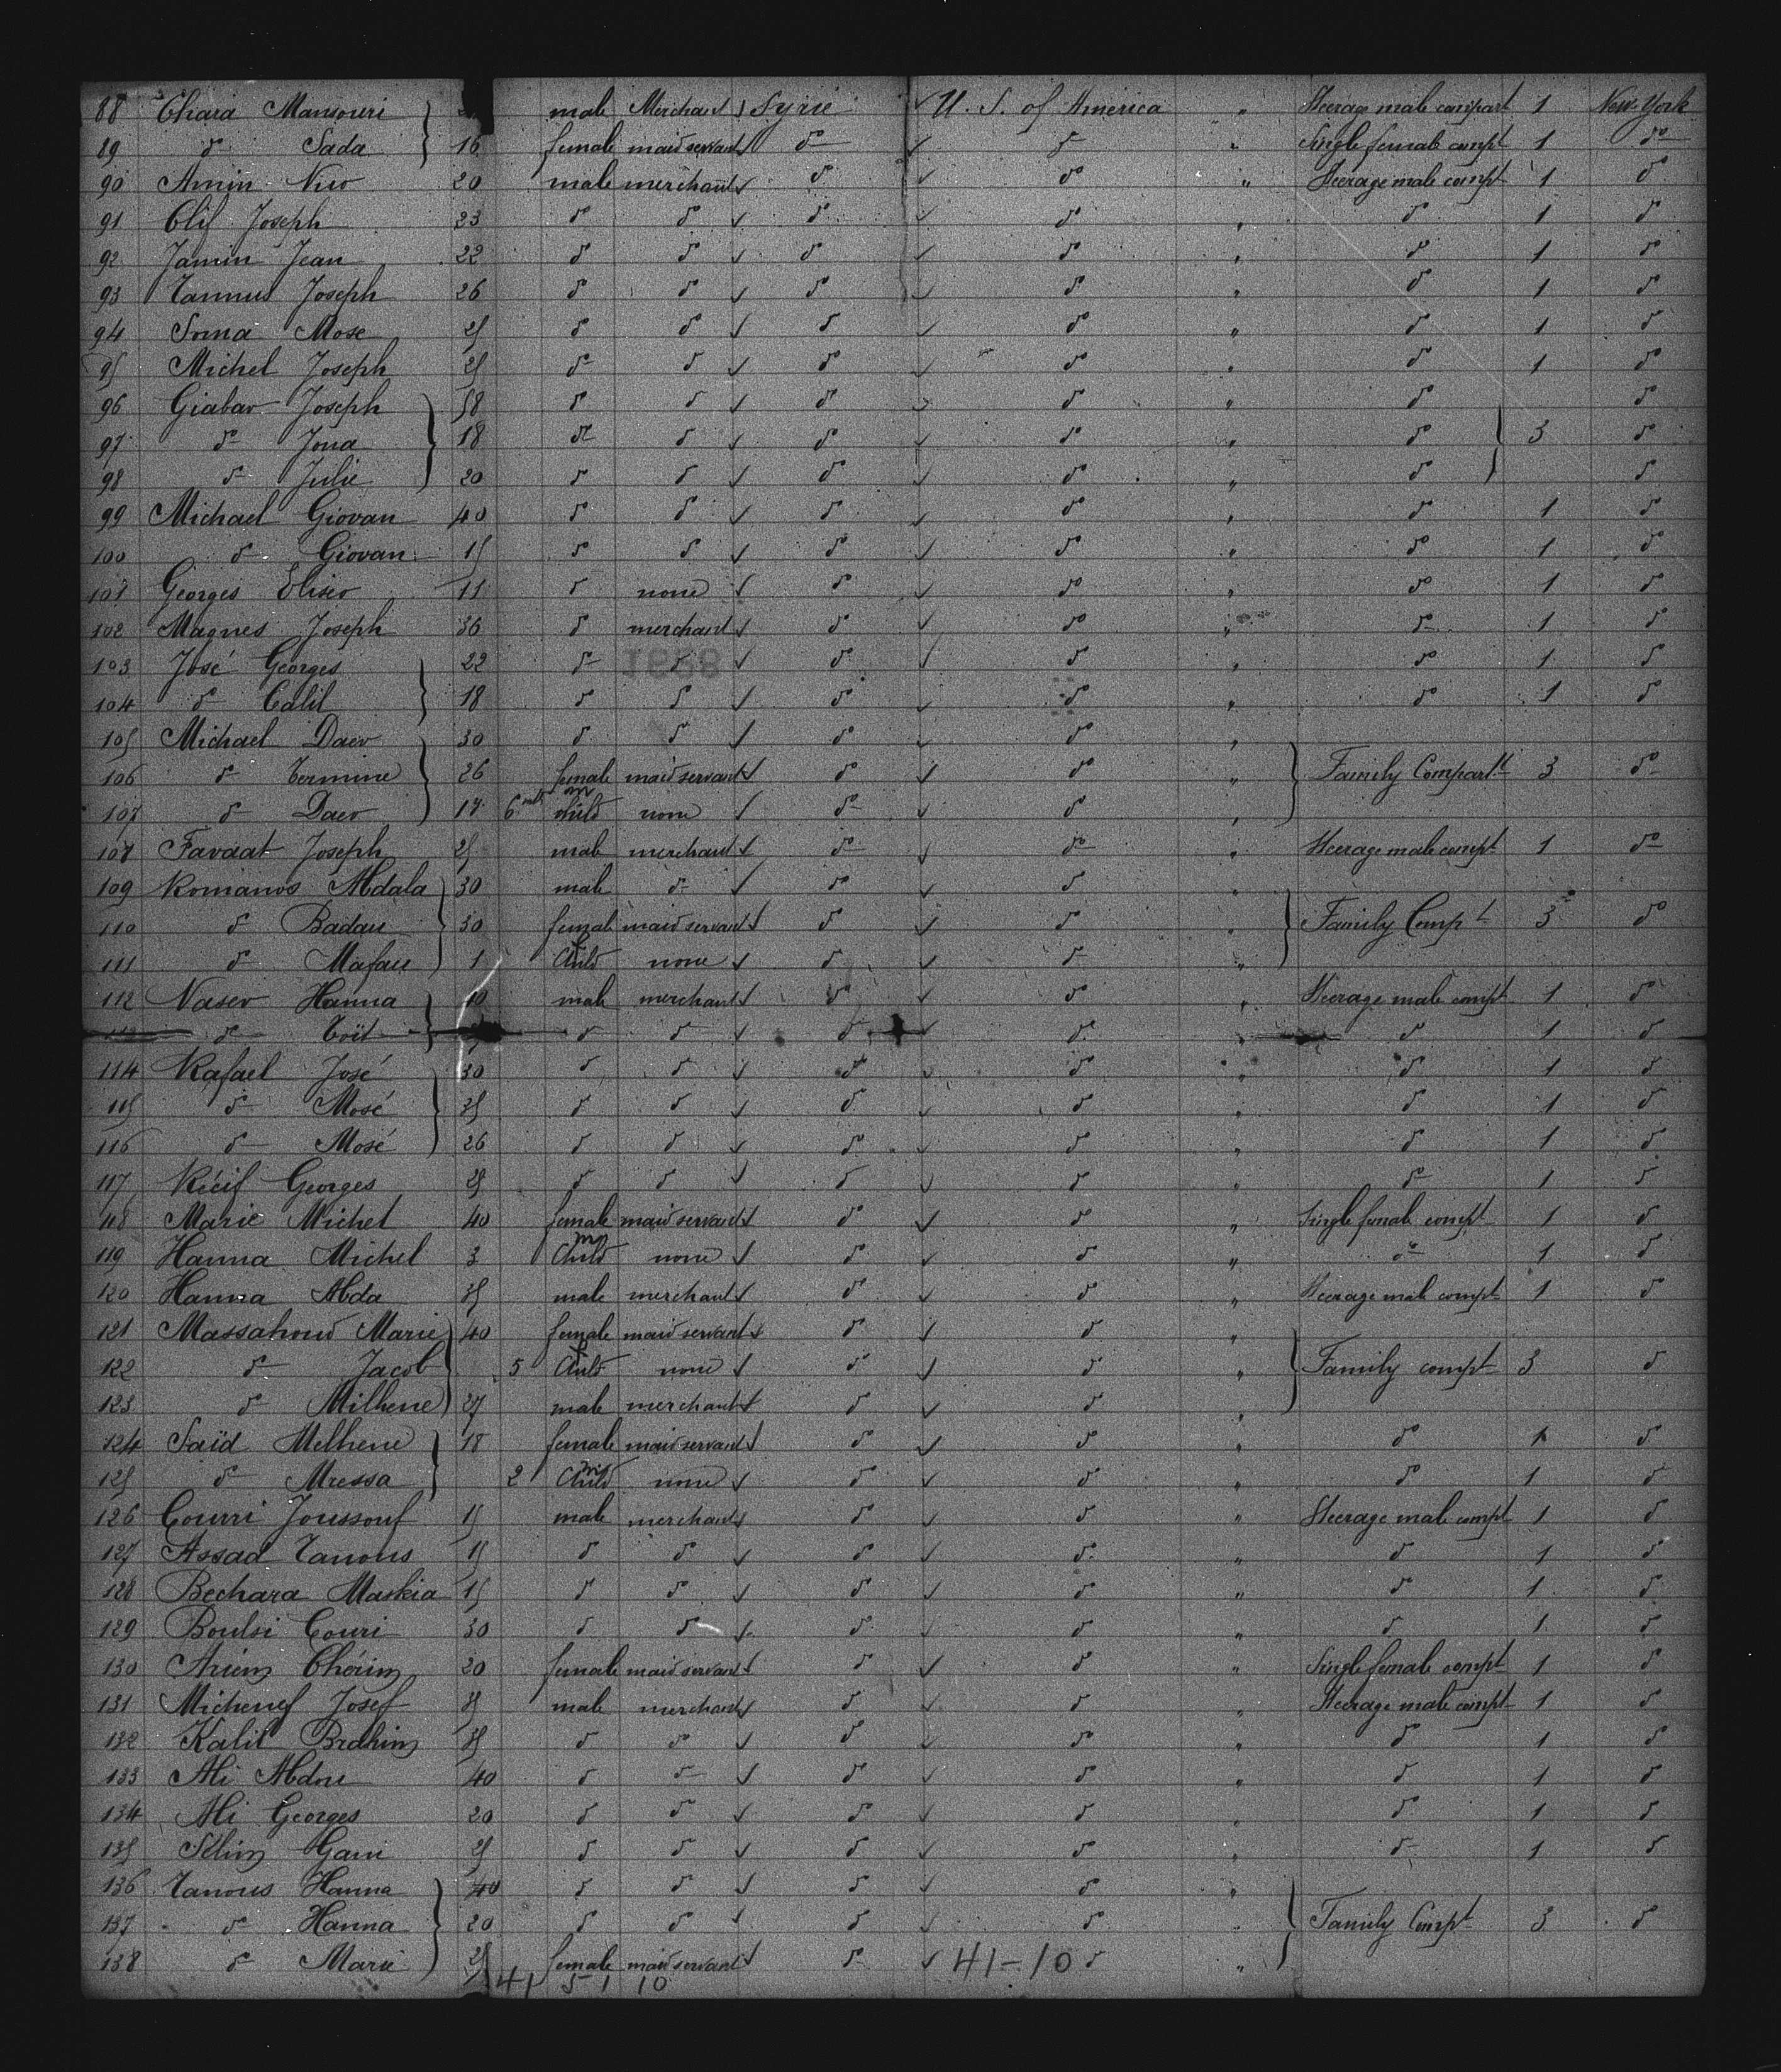 88 Chaia Mansouri male Merchant Syrie U. S. of America " Steerage male compart 1 New-York
89 do Sada 16 female maid servant do do " Single female compt 1 do
90 Amin 20 male merchant do do " Steerage male compt 1 do
91 Clif Joseph 23 do do do do " do 1 do
92 Jamin Jean 22 do do do do " do 1 do
93 Tannus Joseph 26 do do do do " do 1 do
94 Soma Mose 25 do do do do " do 1 do
95 Michel Joseph 25 do do do do " do 1 do
96 Giabar Joseph 58 do do do do " do do
97 do Jona 18 do do do do " do 3 do
98 do Julie 20 do do do do " do do
99 Michael Giovan 40 do do do do " do 1 do
100 do Giovan 15 do do do do " do 1 do
101 Georges Eliseo 11 do none do do " do 1 do
102 Magnes Joseph 36 do merchant do do " do 1 do
103 José Georges 22 do do do do " do 1 do
104 do Calil 18 do do do do " do 1 do
105 Michael Daer 30 do do do do "
106 do Termine 26 female maid servant do do " Family Compartt 3 do
107 do Daer 17 6 mts m child none do do "
108 Favaat Joseph 25 male merchant do do " Steerage male compt 1 do
109 Romanos Abdala 30 male do do do "
110 do Badau 30 female maid servant do do " Family Compt 3 do
111 do Mafau 1 f Child none do do "
112 Naser Hanna 10 male merchant do do " Steerage male compt 1 do
113 do Toït do do do do " do 1 do
114 Rafael José 30 do do do do " do 1 do
115 do Mosé 35 do do do do " do 1 do
116 do Mosé 26 do do do do " do 1 do
117 Récif Georges 25 do do do do " do 1 do
118 Marie Michel 40 female maid servant do do " Single female compt 1 do
119 Hanna Michel 3 m Child none do do " do 1 do
120 Hanna Abda 35 male merchant do do " Steerage male compt 1 do
121 Massahoud Marie 40 female maid servant do do "
122 do Jacob 5 f Child none do do " Family compt 3 do
123 do Milhene 27 male merchant do do "
124 Saïd Melhene 18 female maid servant do do " do 1 do
125 do Mressa 2 m Child none do do " do 1 do
126 Courri Joussouf 15 male merchant do do " Steerage male compt 1 do
127 Assad Tanous 15 do do do do " do 1 do
128 Bechara Maskia 15 do do do do " do 1 do
129 Boulsi Couri 30 do do do do " do 1 do
130 Ariem Chérim 20 female maid servant do do " Single female compt 1 do
131 Michenef Josef 35 male merchant do do " Steerage male compt 1 do
132 Kalil Brahim 35 do do do do " do 1 do
133 Ali Abdou 40 do do do do " do 1 do
134 Ali Georges 20 do do do do " do 1 do
135 Selim Gani 25 do do do do " do 1 do
136 Tanous Hanna 40 do do do do "
137 do Hanna 20 do do do do " Family Compt 3 do
138 do Marie 25 female maid servant do 41-10 do "
41 5 1 10